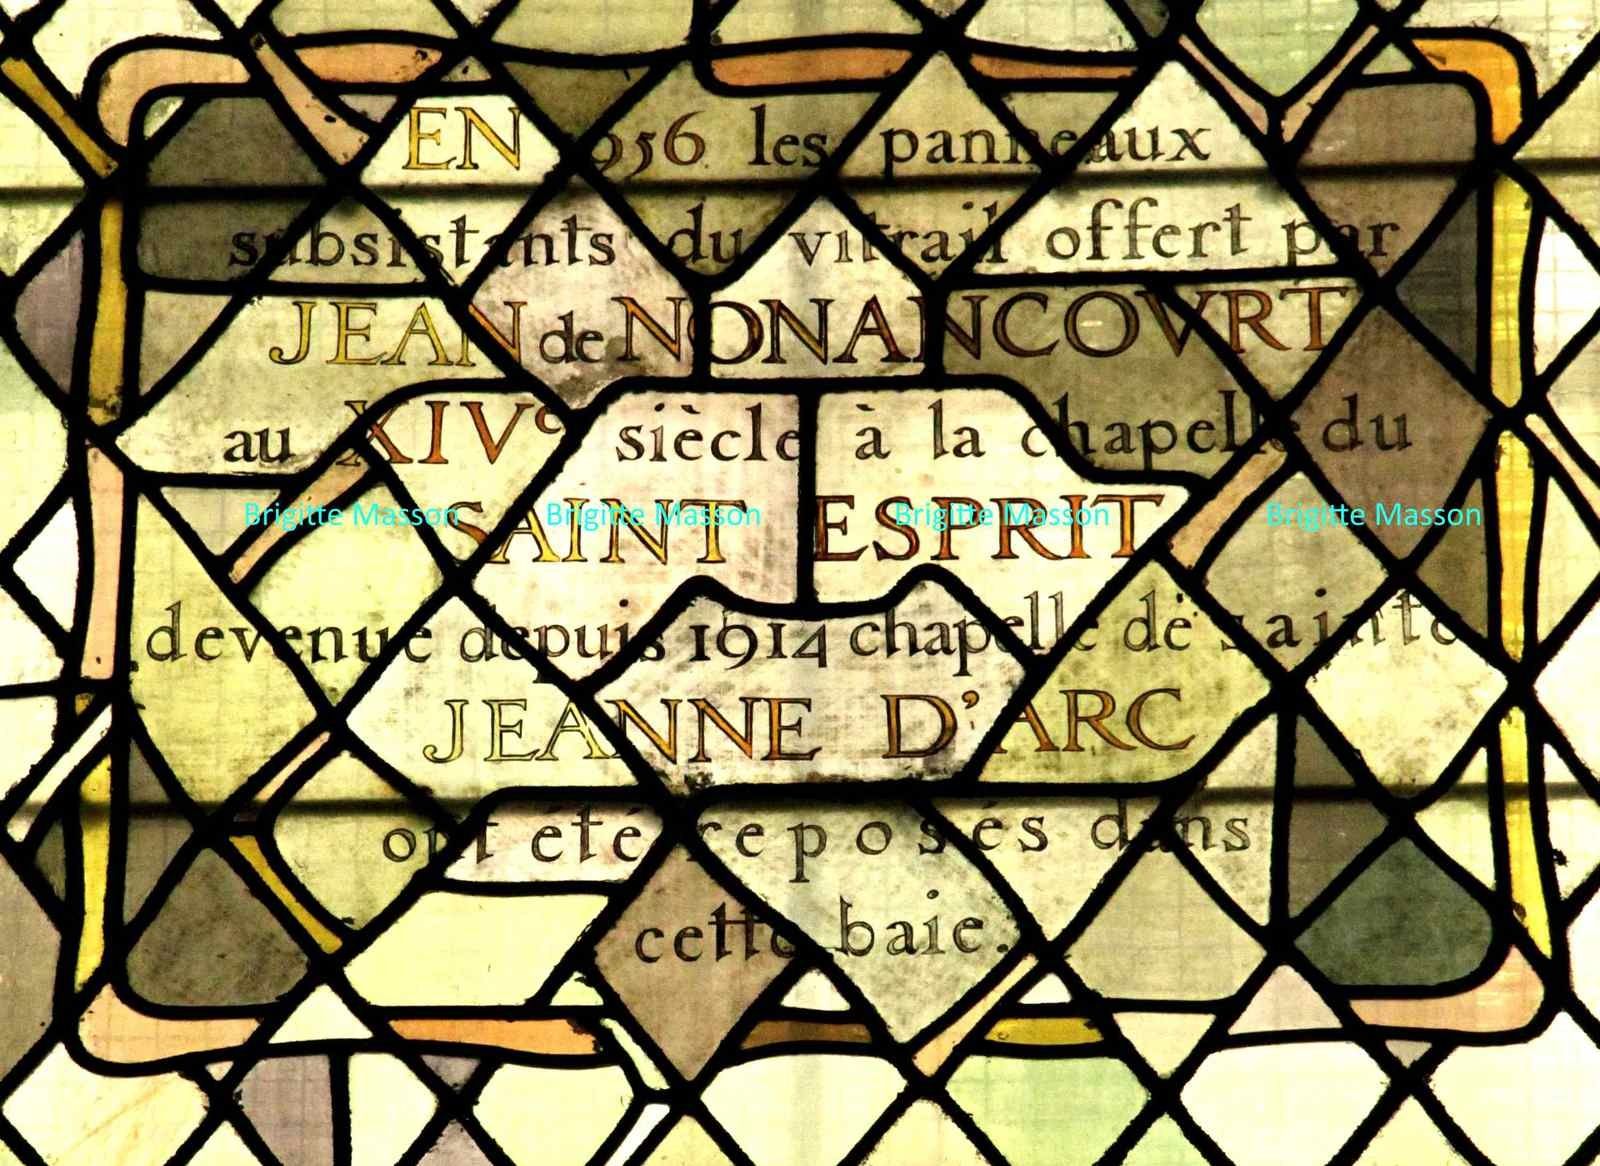 EN 1956 les panneaux
subsistants du vitrail offert par
JEAN de NONANCOVRT
au XIVe siècle à la chapelle du
SAINT ESPRIT
Brigitte Masson Brigitte Masson Brigitte Masson Brigitte Masson
devenue depuis 1914 chapelle de sainte
JEANNE D'ARC
ont été reposés dans
cette baie.